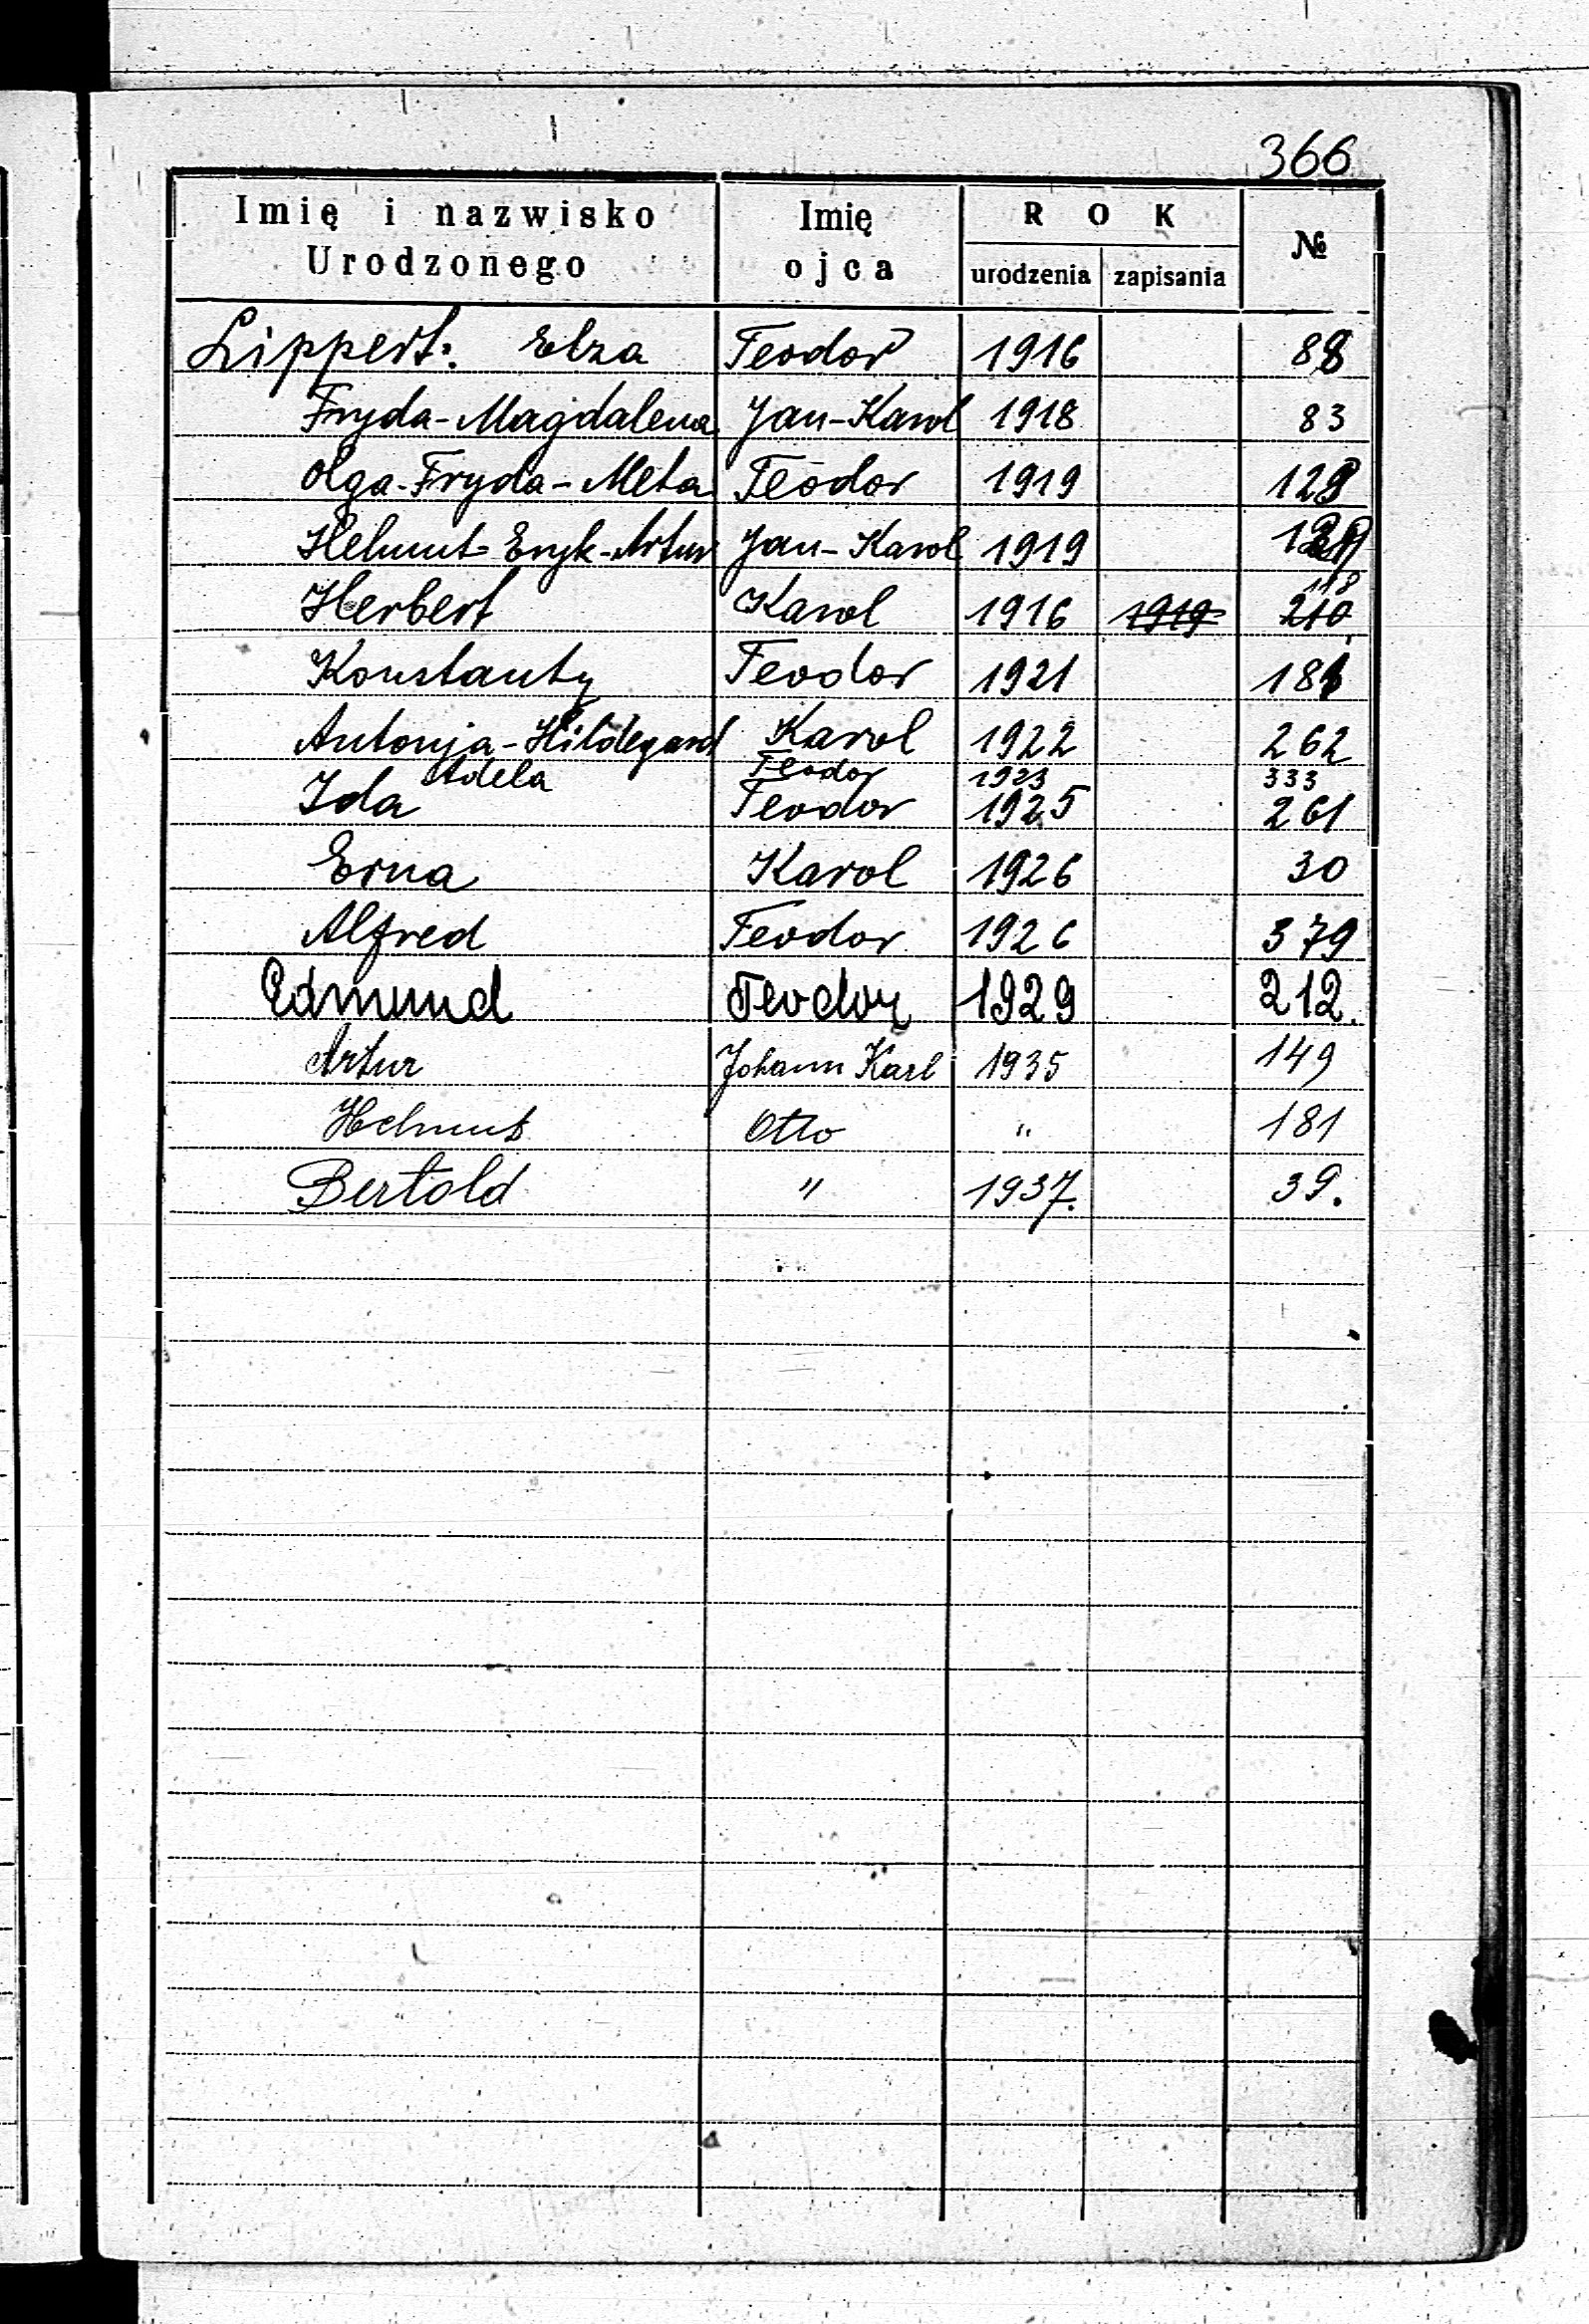 366
Imię i nazwisko Urodzonego Imię ojca ROK urodzenia zapisania №
Lippert: Elza Teodor 1916 88
Fryda-Magdalena Jan-Karol 1918 83
Olga-Fryda-Meta Teodor 1919
Helmut-Eryk-Artur Jan-Karol 1919
118
Herbert Karol 1916 1919 210
Konstanty Teodor 1921
Antonja-Hildegard Karol 1922 262
Adela Teodor 1923 333
Ida Teodor 1925 261
Erna Karol 1926 30
Alfred Teodor 1926 379
Edmund Teodor 1929 212.
Artur Johann Karl 1935 149
Helmut Otto " 181
Bertold " 1937. 39.